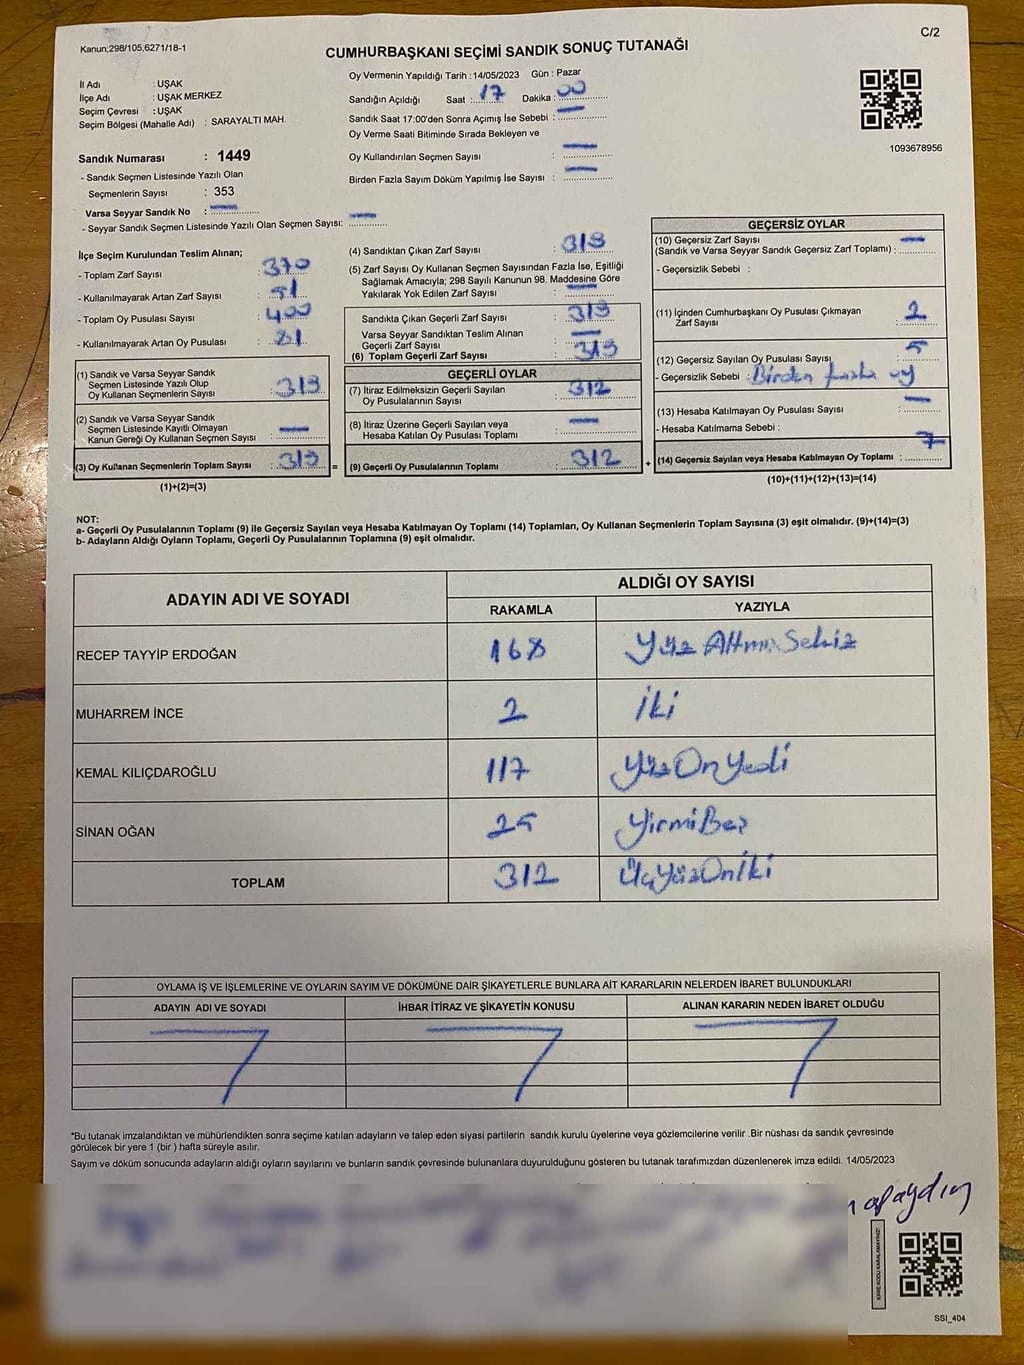 Kanun,298/105,6271/18-1
C/2
CUMHURBAŞKANI SEÇİMİ SANDIK SONUÇ TUTANAĞI
İl Adı : UŞAK
İlçe Adı : UŞAK MERKEZ
Seçim Çevresi : UŞAK
Seçim Bölgesi (Mahalle Adı) : SARAYALTI MAH.
Sandık Numarası : 1449
- Sandık Seçmen Listesinde Yazılı Olan
Seçmenlerin Sayısı : 353
Varsa Seyyar Sandık No : —
- Seyyar Sandık Seçmen Listesinde Yazılı Olan Seçmen Sayısı: —
Oy Vermenin Yapıldığı Tarih : 14/05/2023 Gün : Pazar
Sandığın Açıldığı Saat : 17 Dakika : 00
Sandık Saat 17:00'den Sonra Açımış İse Sebebi : —
Oy Verme Saati Bitiminde Sırada Bekleyen ve
Oy Kullandırılan Seçmen Sayısı : —
Birden Fazla Sayım Döküm Yapılmış İse Sayısı : —
1093678956
İlçe Seçim Kurulundan Teslim Alınan;
- Toplam Zarf Sayısı : 370
- Kullanılmayarak Artan Zarf Sayısı : 51
- Toplam Oy Pusulası Sayısı : 400
- Kullanılmayarak Artan Oy Pusulası : 81
(1) Sandık ve Varsa Seyyar Sandık
Seçmen Listesinde Yazılı Olup
Oy Kullanan Seçmenlerin Sayısı : 319
(2) Sandık ve Varsa Seyyar Sandık
Seçmen Listesinde Kayıtlı Olmayan
Kanun Gereği Oy Kullanan Seçmen Sayısı : —
(3) Oy Kullanan Seçmenlerin Toplam Sayısı : 319 =
(1)+(2)=(3)
(4) Sandıktan Çıkan Zarf Sayısı : 319
(5) Zarf Sayısı Oy Kullanan Seçmen Sayısından Fazla İse, Eşitliği
Sağlamak Amacıyla; 298 Sayılı Kanunun 98. Maddesine Göre
Yakılarak Yok Edilen Zarf Sayısı : —
Sandıkta Çıkan Geçerli Zarf Sayısı : 319
Varsa Seyyar Sandıktan Teslim Alınan
Geçerli Zarf Sayısı : —
(6) Toplam Geçerli Zarf Sayısı : 319
GEÇERLİ OYLAR
(7) İtiraz Edilmeksizin Geçerli Sayılan
Oy Pusulalarının Sayısı : 312
(8) İtiraz Üzerine Geçerli Sayılan veya
Hesaba Katılan Oy Pusulası Toplamı : —
(9) Geçerli Oy Pusulalarının Toplamı : 312 +
GEÇERSİZ OYLAR
(10) Geçersiz Zarf Sayısı
(Sandık ve Varsa Seyyar Sandık Geçersiz Zarf Toplamı) : —
- Geçersizlik Sebebi :
(11) İçinden Cumhurbaşkanı Oy Pusulası Çıkmayan
Zarf Sayısı : 2
(12) Geçersiz Sayılan Oy Pusulası Sayısı : 5
- Geçersizlik Sebebi : Birden fazla oy
(13) Hesaba Katılmayan Oy Pusulası Sayısı : —
- Hesaba Katılmama Sebebi :
(14) Geçersiz Sayılan veya Hesaba Katılmayan Oy Toplamı : 7
(10)+(11)+(12)+(13)=(14)
NOT:
a- Geçerli Oy Pusulalarının Toplamı (9) ile Geçersiz Sayılan veya Hesaba Katılmayan Oy Toplamı (14) Toplamları, Oy Kullanan Seçmenlerin Toplam Sayısına (3) eşit olmalıdır. (9)+(14)=(3)
b- Adayların Aldığı Oyların Toplamı, Geçerli Oy Pusulalarının Toplamına (9) eşit olmalıdır.
ADAYIN ADI VE SOYADI
ALDIĞI OY SAYISI
RAKAMLA YAZIYLA
RECEP TAYYİP ERDOĞAN 168 Yüz Altmış Sekiz
MUHARREM İNCE 2 İki
KEMAL KILIÇDAROĞLU 117 YüzOnYedi
SİNAN OĞAN 25 YirmiBeş
TOPLAM 312 ÜçYüzOnİki
OYLAMA İŞ VE İŞLEMLERİNE VE OYLARIN SAYIM VE DÖKÜMÜNE DAİR ŞİKAYETLERLE BUNLARA AİT KARARLARIN NELERDEN İBARET BULUNDUKLARI
ADAYIN ADI VE SOYADI İHBAR İTİRAZ VE ŞİKAYETİN KONUSU ALINAN KARARIN NEDEN İBARET OLDUĞU
*Bu tutanak imzalandıktan ve mühürlendikten sonra seçime katılan adayların ve talep eden siyasi partilerin sandık kurulu üyelerine veya gözlemcilerine verilir .Bir nüshası da sandık çevresinde
görülecek bir yere 1 (bir ) hafta süreyle asılır.
Sayım ve döküm sonucunda adayların aldığı oyların sayılarını ve bunların sandık çevresinde bulunanlara duyurulduğunu gösteren bu tutanak tarafımızdan düzenlenerek imza edildi. 14/05/2023
KARE KODU KARALAMAYINIZ!
SSI_404